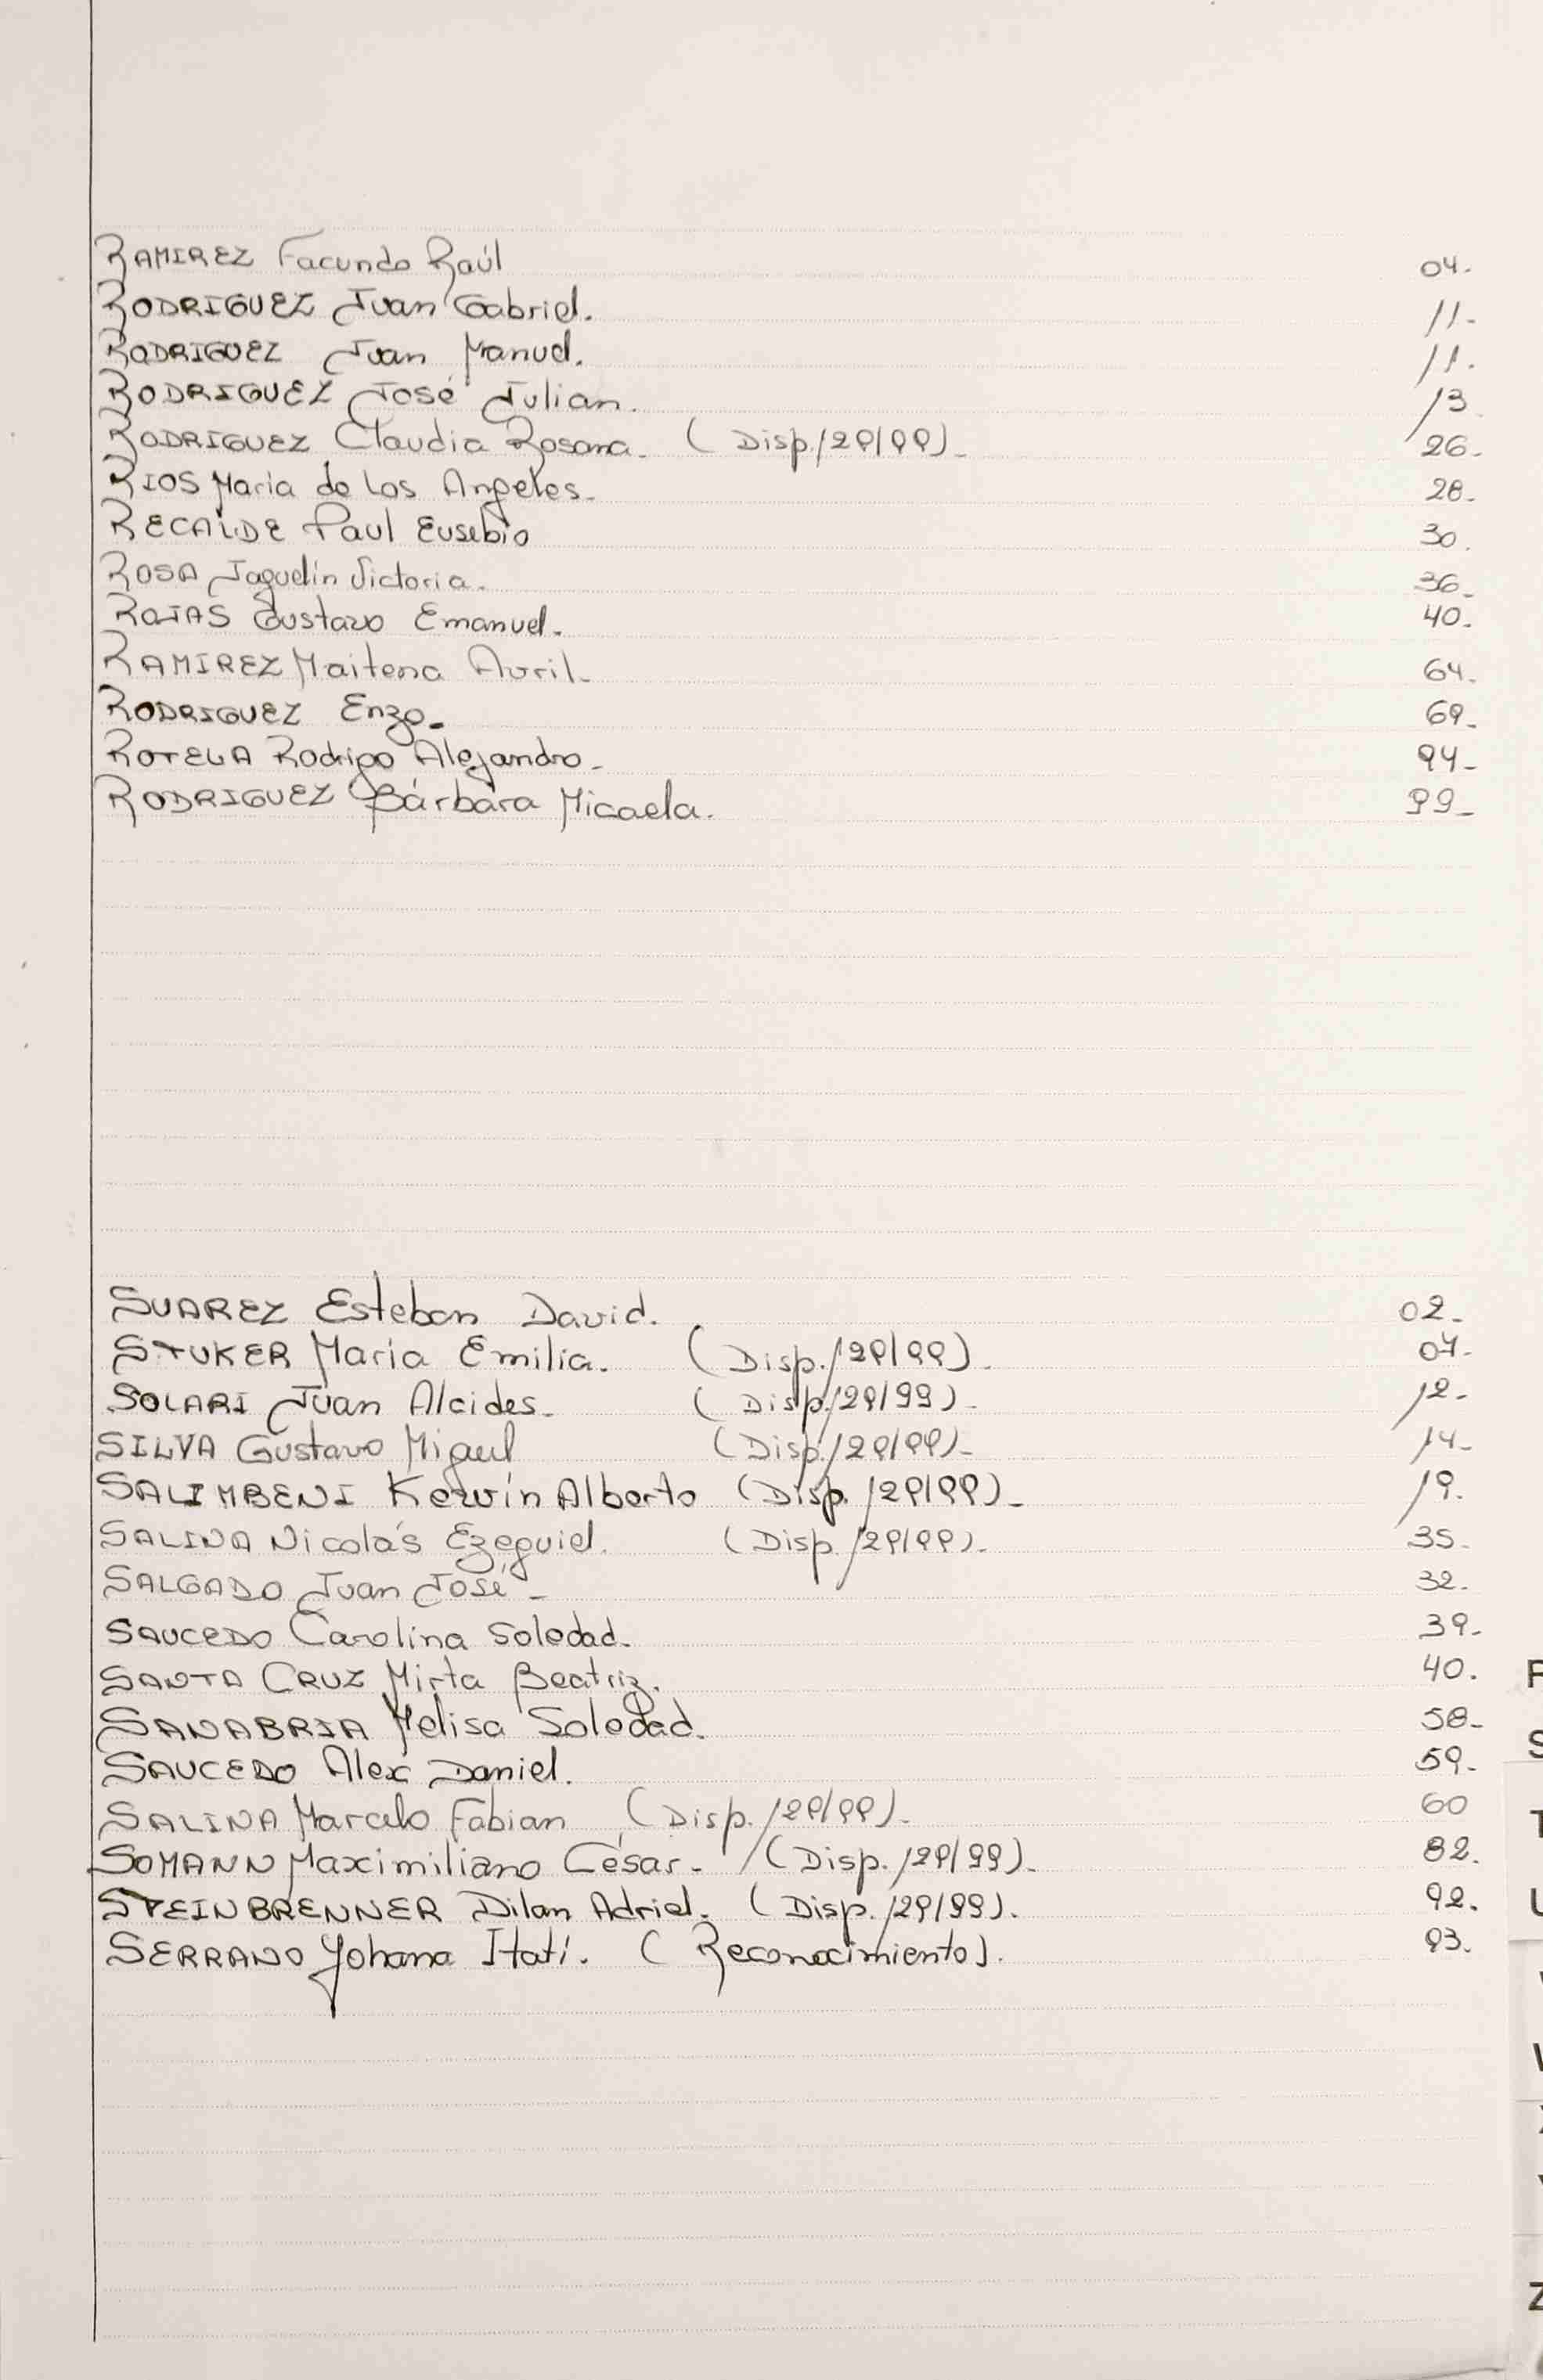 RAMIREZ Facundo Raúl 04.
RODRIGUEZ Juan Gabriel. 11.
RODRIGUEZ Juan Manuel. 11.
RODRIGUEZ José Julian. 13
RODRIGUEZ Claudia Rosana. (Disp./29/99)- 26-
RIOS Maria de Los Angeles- 28-
RECALDE Paul Eusebio 30.
ROSA Jaquelin Victoria. 36-
ROJAS Gustavo Emanuel. 40.
RAMIREZ Maitena Avril- 64.
RODRIGUEZ Enzo. 69-
ROTELA Rodrigo Alejandro- 94-
RODRIGUEZ Bárbara Micaela. 99-
SUAREZ Esteban David. 02-
STUKER Maria Emilia. (Disp./29/99)- 04-
SOLARI Juan Alcides- (Disp./29/99)- 12-
SILVA Gustavo Miguel (Disp./29/99)- 14-
SALIMBENI Kervin Alberto (Disp./29/99)- 19.
SALINA Nicolás Ezequiel. (Disp./29/99)- 35-
SALGADO Juan José- 32.
SAUCEDO Carolina Soledad- 39-
SANTA CRUZ Mirta Beatriz. 40.
SANABRIA Melisa Soledad. 58-
SAUCEDO Alex Daniel. 59-
SALINA Marcelo Fabian (Disp./29/99)- 60
SOMANN Maximiliano César- (Disp./29/99)- 82.
STEINBRENNER Dilan Adriel. (Disp./29/99). 92.
SERRANO Yohana Itatí. (Reconocimiento). 93.
S
Z